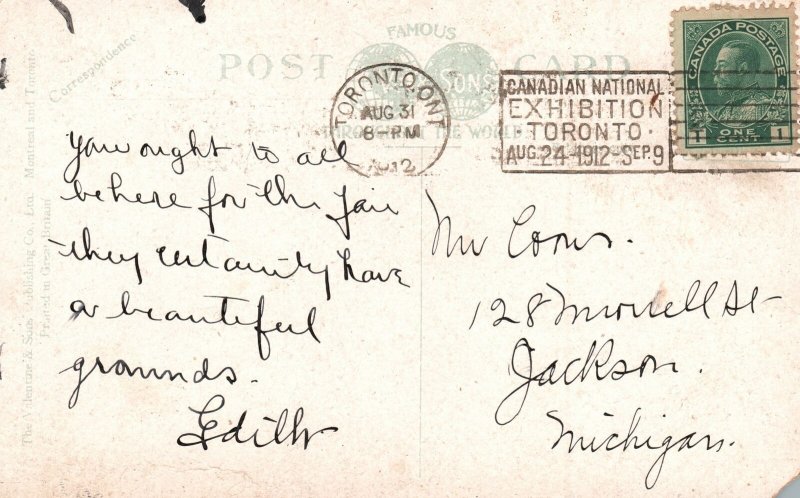 FAMOUS
POST CARD
SONS
THROUGHOUT THE WORLD
Correspondence
The Valentine & Sons Publishing Co., Ltd. Montreal and Toronto.
Printed in Great Britain
TORONTO, ONT
AUG 31
8-PM
1912
CANADIAN NATIONAL
EXHIBITION
TORONTO.
AUG. 24-1912-SEP. 9
CANADA POSTAGE
1 ONE CENT 1
You ought to all
be here for the fair
they certainly have
a beautiful
grounds.
Edith
Mr Coons.
128 Morrell St
Jackson.
Michigan.